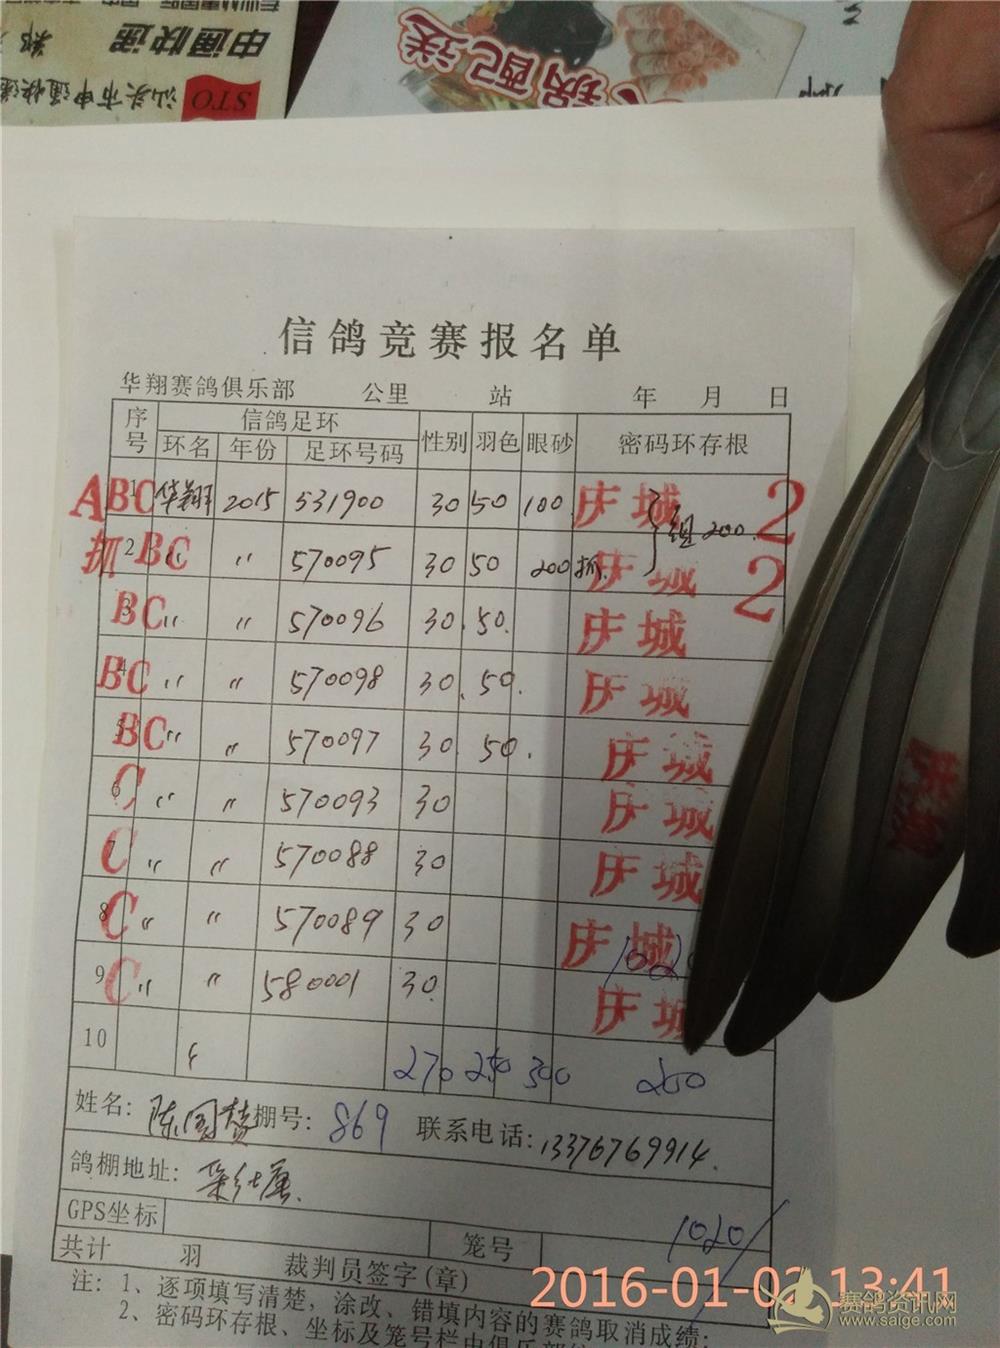 申通快递
汕头市申通快递
STO
锅配送
信鸽竞赛报名单
华翔赛鸽俱乐部 公里 站 年 月 日
序号 信鸽足环 性别 羽色 眼砂 密码环存根
环名 年份 足环号码
ABC 1 华翔 2015 531900 30 50 100 庆城 2
组 200
抓 BC 2 〃 〃 570095 30 50 200抓 庆城 2
BC 3 〃 〃 570096 30. 50. 庆城
BC 4 〃 〃 570098 30. 50. 庆城
BC 5 〃 〃 570097 30 50. 庆城
C 6 〃 〃 570093 30 庆城
C 7 〃 〃 570088 30 庆城
C 8 〃 〃 570089 30 庆城
C 9 〃 〃 580001 30. 庆城
10 270 250 300 200
姓名: 棚号: 869 联系电话: 13376769914.
鸽棚地址:
GPS坐标 1020/
共计 羽 裁判员签字(章) 笼号
注: 1、逐项填写清楚，涂改、错填内容的赛鸽取消成绩;
2、密码环存根、坐标及笼号栏由俱乐部
庆城
2016-01-02 13:41
赛鸽资讯网
www.saige.com